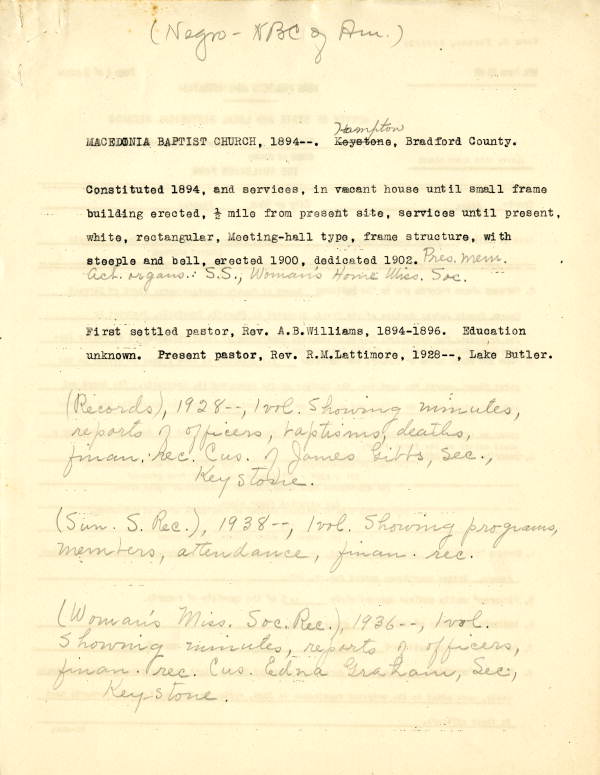 (Negro - NBC of Am.)
Hampton
MACEDONIA BAPTIST CHURCH, 1894--. Keystone, Bradford County.
Constituted 1894, and services, in vacant house until small frame
building erected, ½ mile from present site, services until present,
white, rectangular, Meeting-hall type, frame structure, with
steeple and bell, erected 1900, dedicated 1902. Pres. mem.
Act. organs.: S.S., Woman's Home Miss. Soc.
First settled pastor, Rev. A.B.Williams, 1894-1896. Education
unknown. Present pastor, Rev. R.M.Lattimore, 1928--, Lake Butler.
(Records), 1928--, 1 vol. Showing minutes,
reports of officers, baptisms, deaths,
finan. rec. Cus. of James Gibbs, Sec.,
Keystone.
(Sun. S. Rec.), 1938--, 1 vol. Showing programs,
members, attendance, finan. rec.
(Woman's Miss. Soc. Rec.), 1936--, 1 vol.
Showing minutes, reports of officers,
finan. rec. Cus. Edna Graham, Sec.,
Keystone.